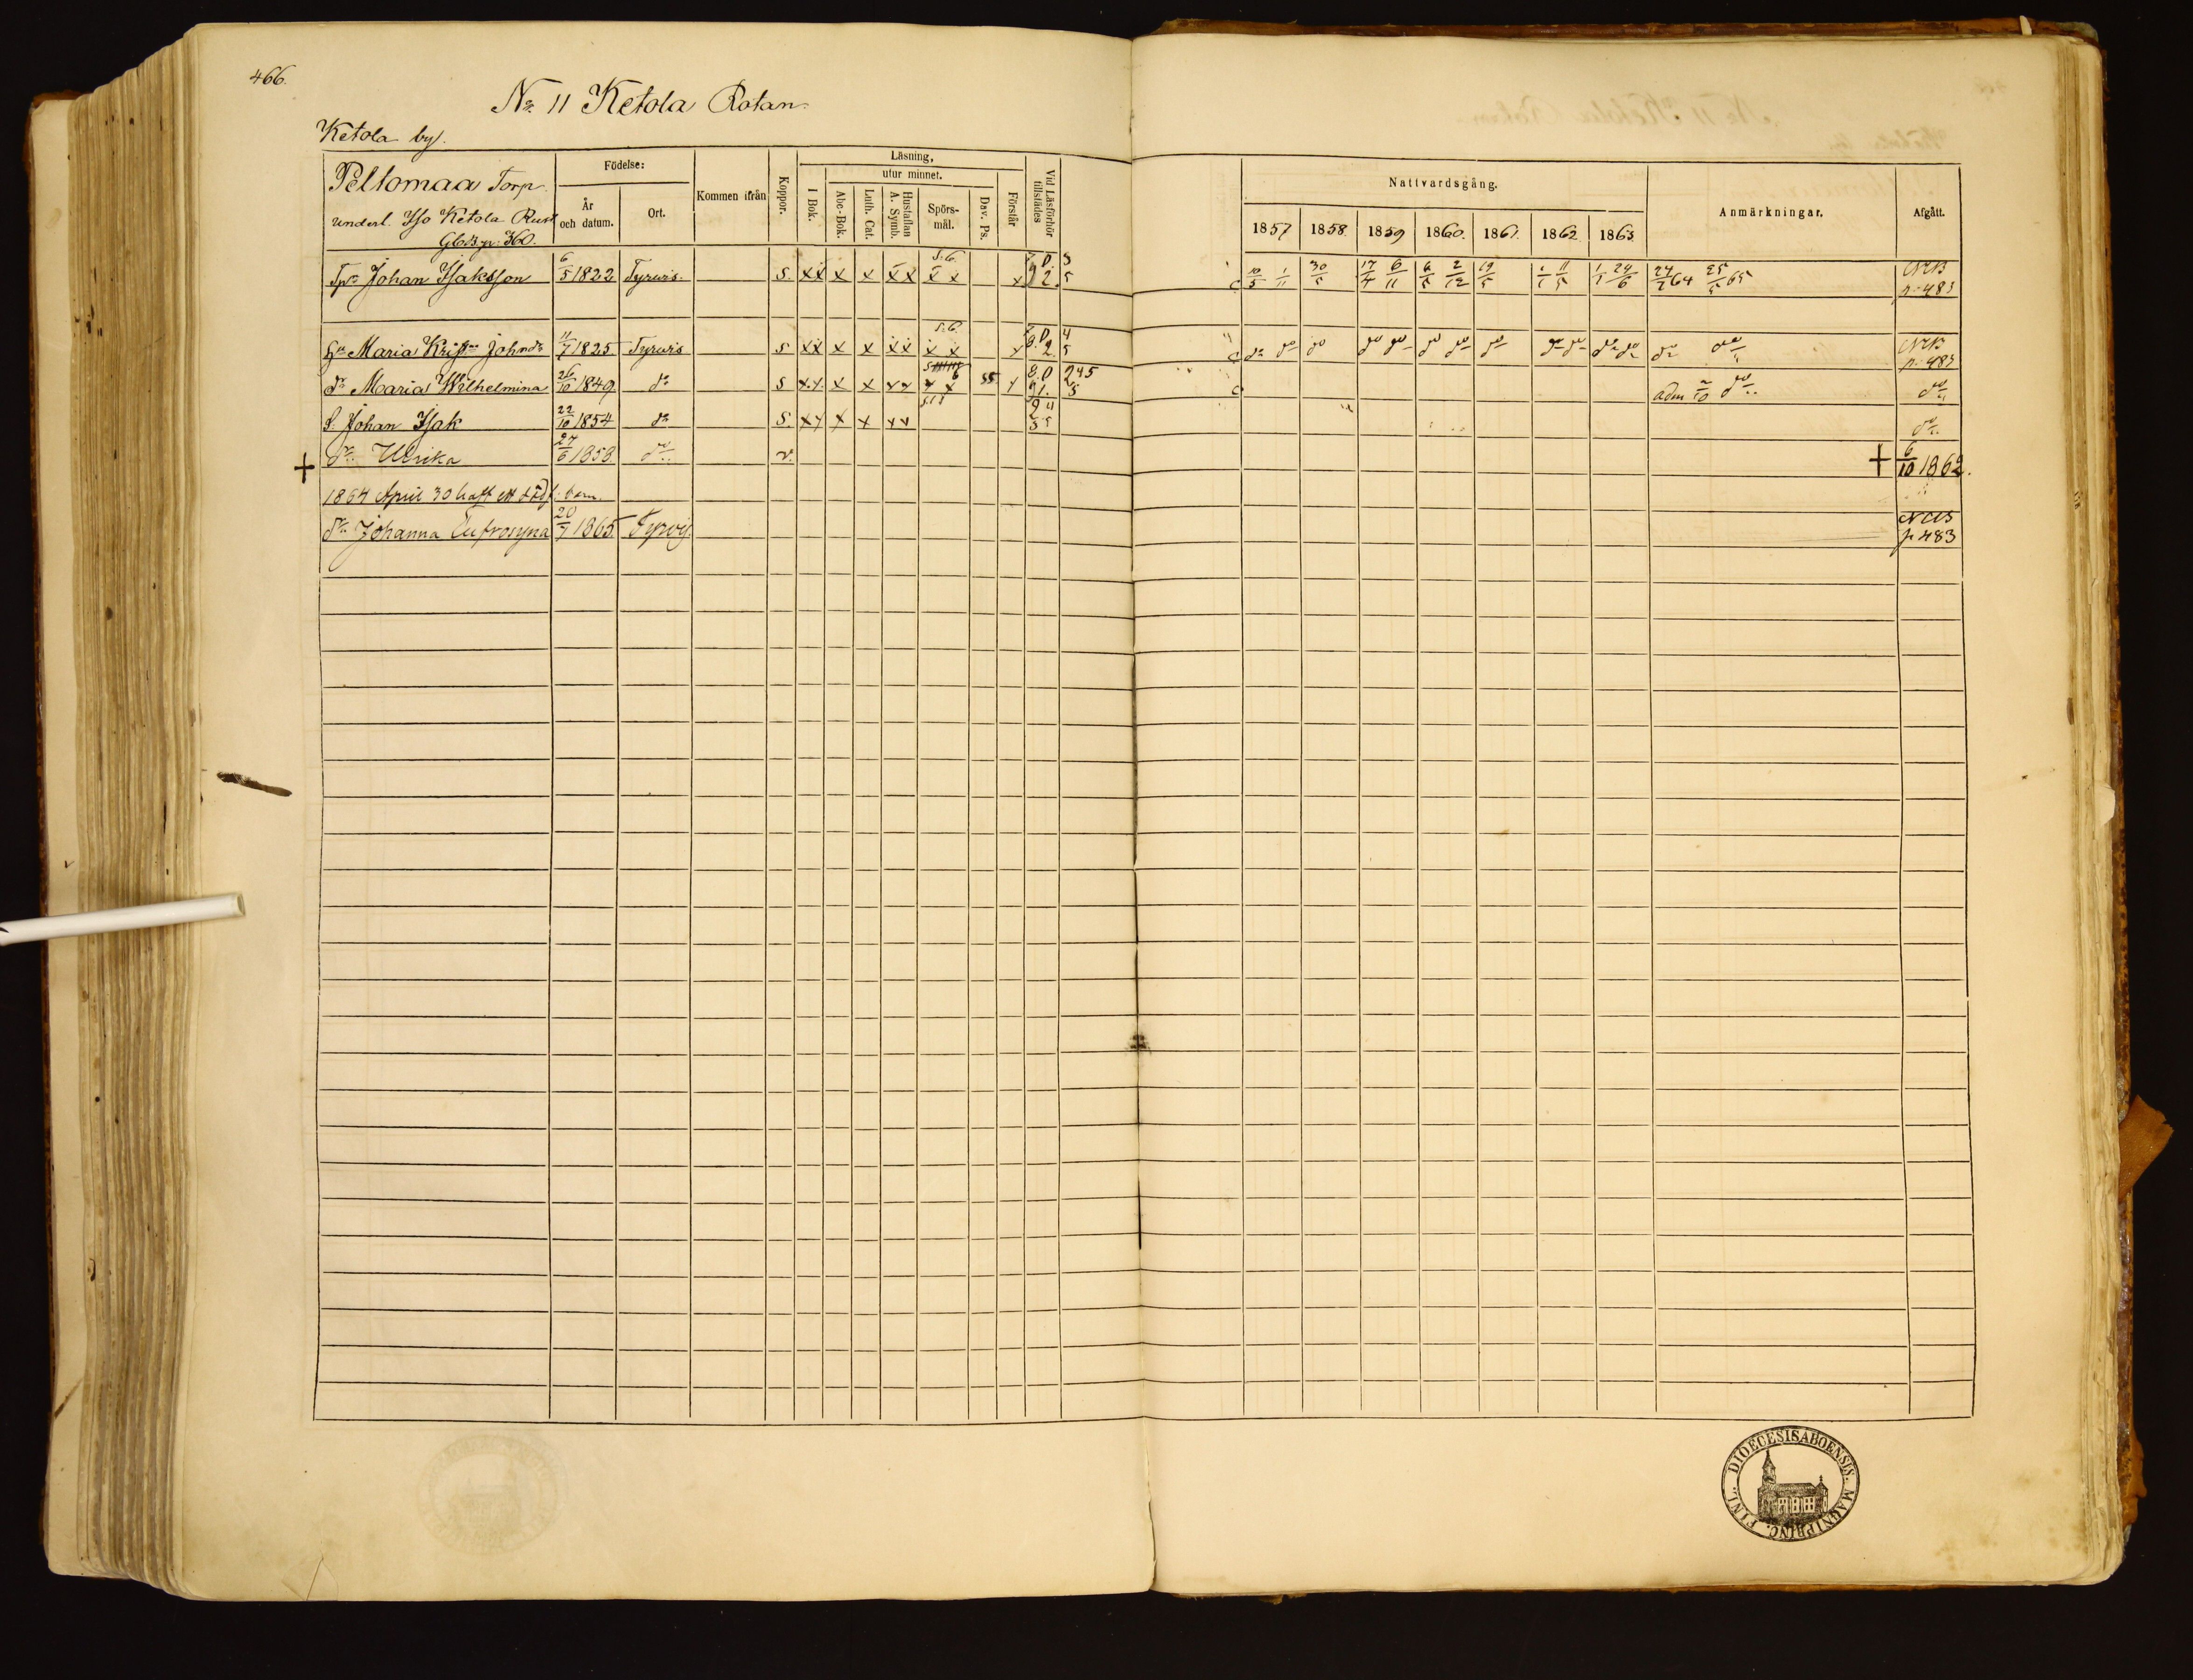 466.
No 11 Ketola Rotan.
Ketola by.
Peltomaa Torp.
underl. Iso Ketola Rust
Gl. B. p: 360.
Födelse:
År och datum.
Ort.
Kommen ifrån
Koppor.
Läsning,
I Bok.
utur minnet.
Abc-Bok.
Luth. Cat.
Hustaflan A. Symb.
Spörs-mål.
Dav. Ps.
Förstår
Vid Läsförhör tillstädes
Nattvardsgång.
1857 1858 1859 1860. 1861. 1862 1863
Anmärkningar.
Afgått.
Tpr Johan Isaksson 6/5 1822 Tyrwis. S. xx x x xx S.6. x x x 10/5 1/11 30/5 17/4 6/11 6/5 2/12 19/5 1/1 11/5 1/1 24/6 64 25/5 65 NKB p. 483
Hu Maria Krist:na Johnds 11/7 1825 Tyrwis S xx x x xx S.6. x x do do do do do do do do do do do do do NKB p. 483
dr Maria Wilhelmina 26/10 1849 do S x x x x x x 55 Adm do do
S. Johan Isak 22/10 1854 do S. x x x x x x do
+ dr Ulrika 27/6 1858 do v. + 6/10 1862.
1864 April 30 haft ett dödf. barn.
dr Johanna Eufrosyna 20/7 1865. Tyrvis. p 483
DIOECESIS ABOENSIS. MAGNI PRINC. FINL.